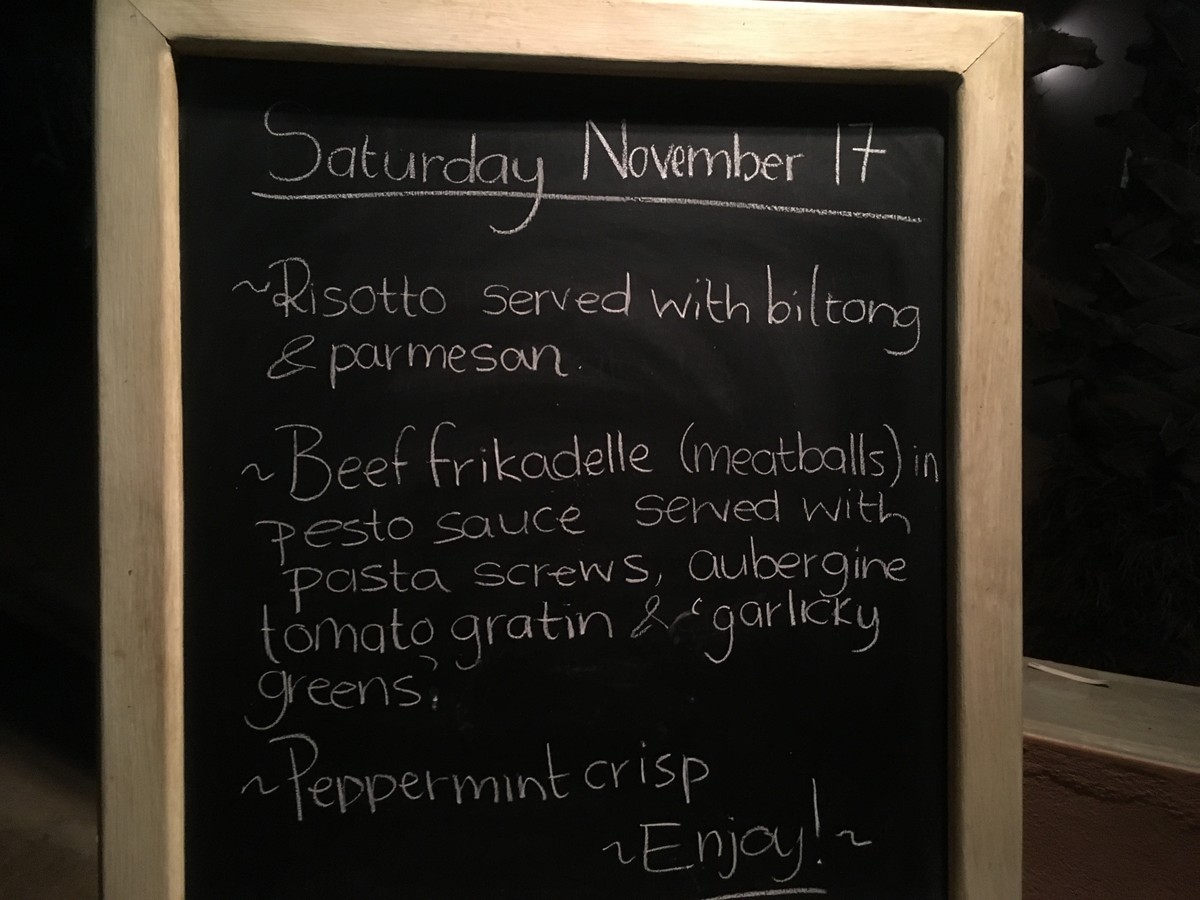 Saturday November 17
~Risotto served with biltong
& parmesan.
~Beef frikadelle (meatballs) in
pesto sauce served with
pasta screws, aubergine
tomato gratin & garlicky
greens.
~Peppermint crisp
~Enjoy!~